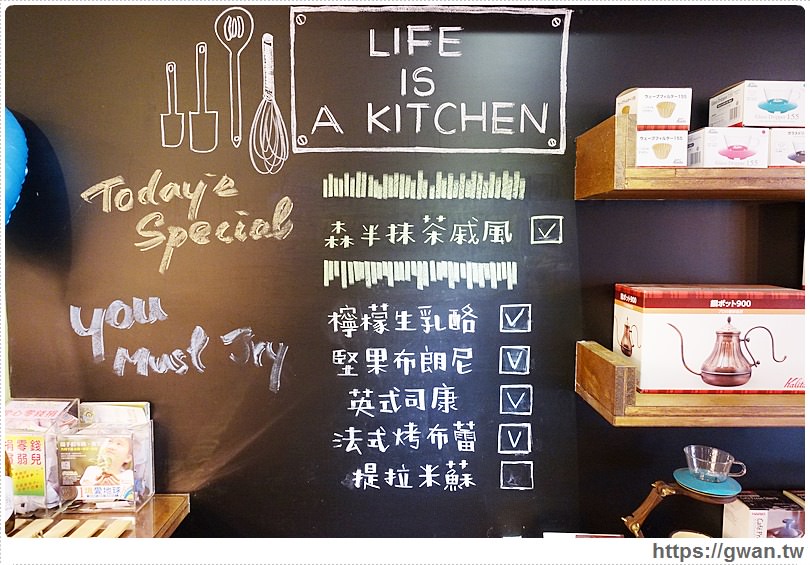 LIFE
IS
A KITCHEN
Today's
Special
森半抹茶戚風
You
Must Try
檸檬生乳酪
堅果布朗尼
英式司康
法式烤布蕾
提拉米蘇
ウェーブフィルター155
ウェーブフィルター155
Glass Dripper 155
155
銅ポット900
Kalita
https://gwan.tw